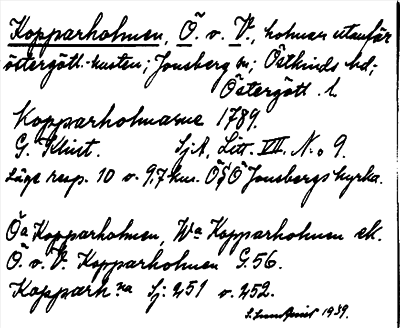 Kopparholmen, Ö. o. V., holmar utanför
östergötl. kusten; Jonsberg sn; Östkinds hd;
Östergötl. l.
Kopparholmarne 1789.
G. Klint. Sjk, Litt. VII. No 9.
Läge resp. 10 o. 9,7 km. ÖSÖ Jonsbergs kyrka.
Öa Kopparholmen, Wa Kopparholmen ek.
Ö. o. V. Kopparholmen G. 56.
Kopparh.na Sj. 251 o. 252.
1939.